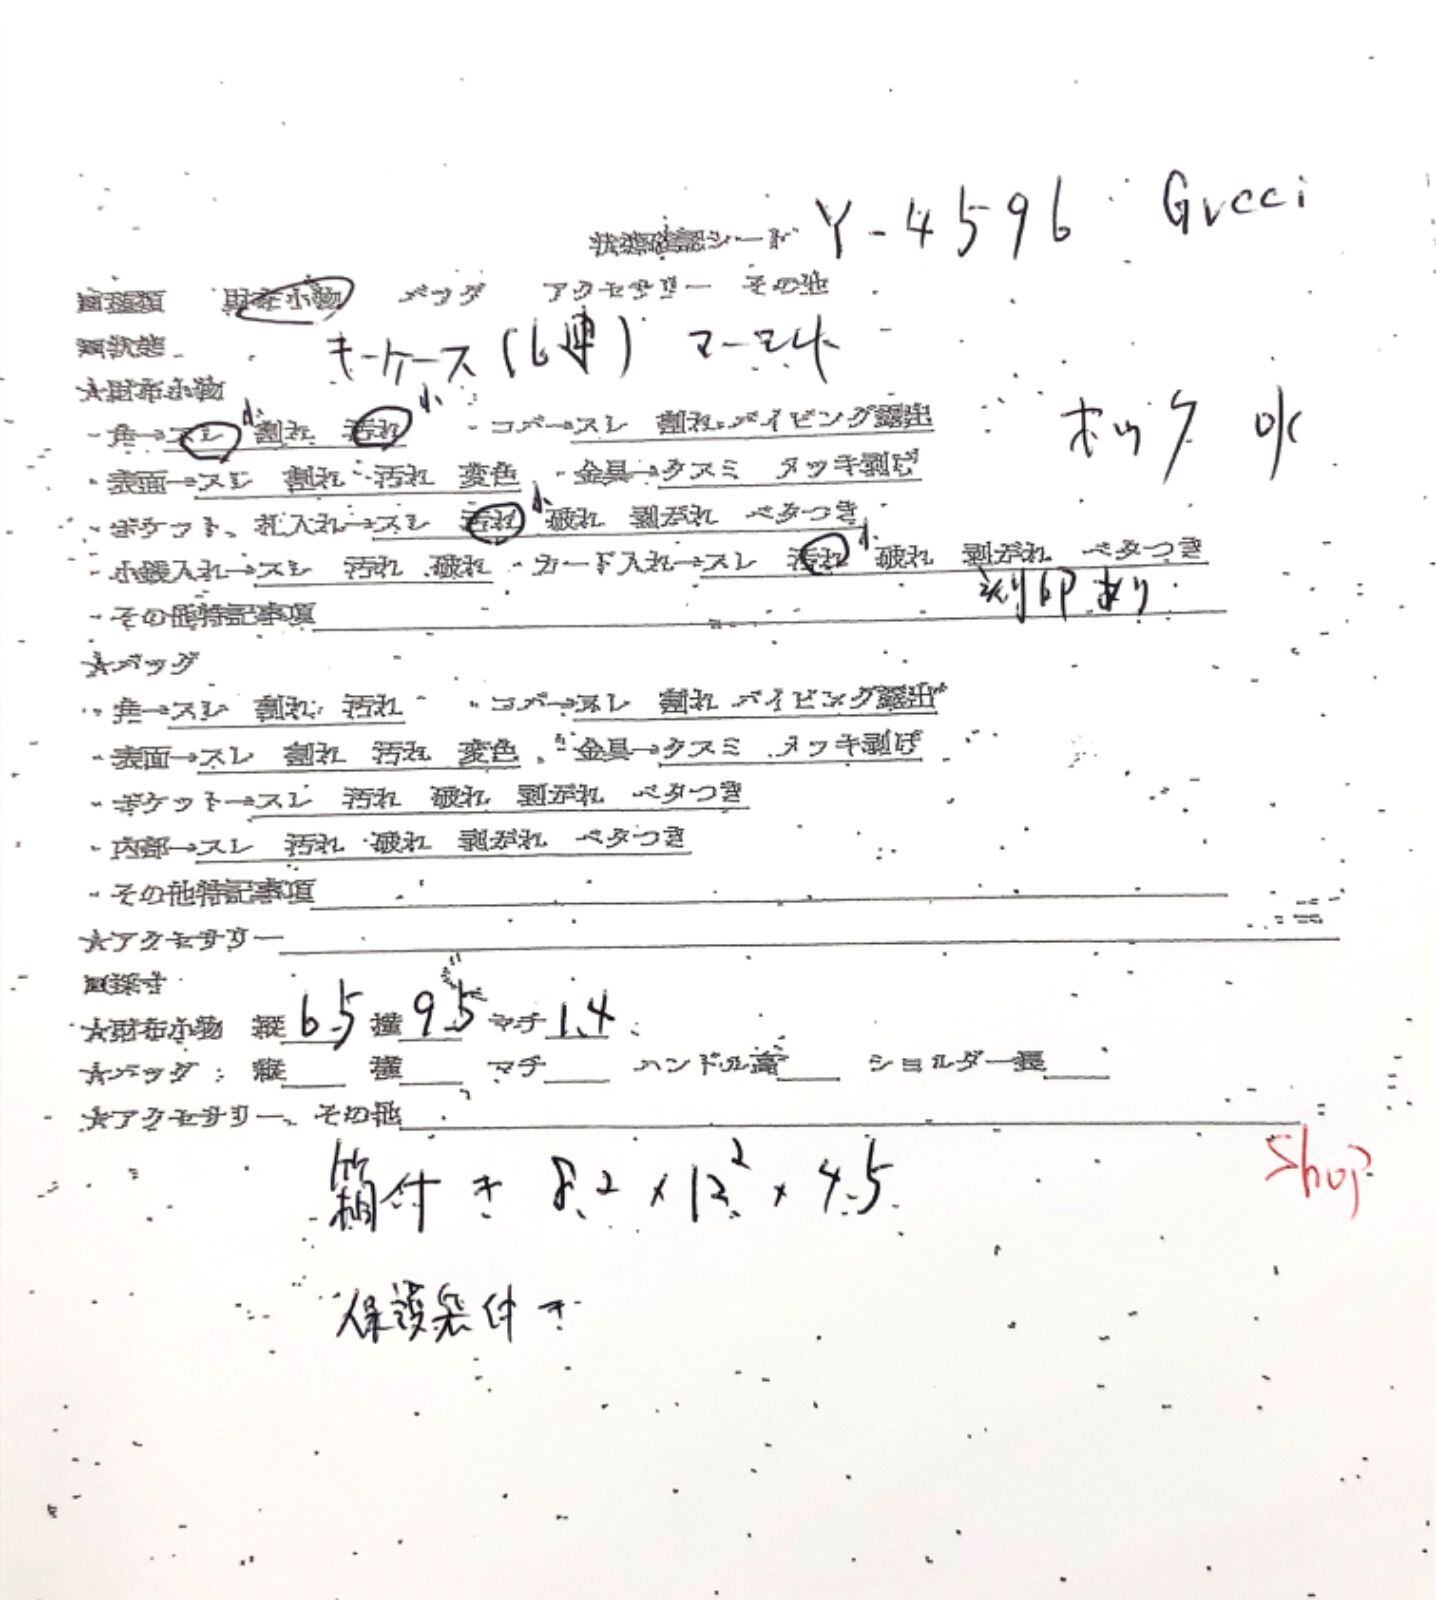 状態確認シート Y-4596 Gucci
■種類 財布小物 バッグ アクセサリー その他
■状態 キーケース(6連) マーモント
★財布小物
・角→スレ 小 割れ 汚れ 小 ・コバ→スレ 割れ パイピング露出 ホック OK
・表面→スレ 割れ 汚れ 変色 ・金具→クスミ メッキ剥げ
・ポケット、札入れ→スレ 汚れ 小 破れ 剥がれ ベタつき
・小銭入れ→スレ 汚れ 破れ ・カード入れ→スレ 汚れ 小 破れ 剥がれ ベタつき
刻印あり
・その他特記事項
★バッグ
・角→スレ 割れ 汚れ ・コバ→スレ 割れ パイピング露出
・表面→スレ 割れ 汚れ 変色 ・金具→クスミ メッキ剥げ
・ポケット→スレ 汚れ 破れ 剥がれ ベタつき
・内部→スレ 汚れ 破れ 剥がれ ベタつき
・その他特記事項
★アクセサリー
■採寸
★財布小物 縦 6.5 横 9.5 マチ 1.4
★バッグ: 縦 横 マチ ハンドル高 ショルダー長
★アクセサリー、その他
箱付き 8.2×12.2×4.5
Shop
保護袋付き